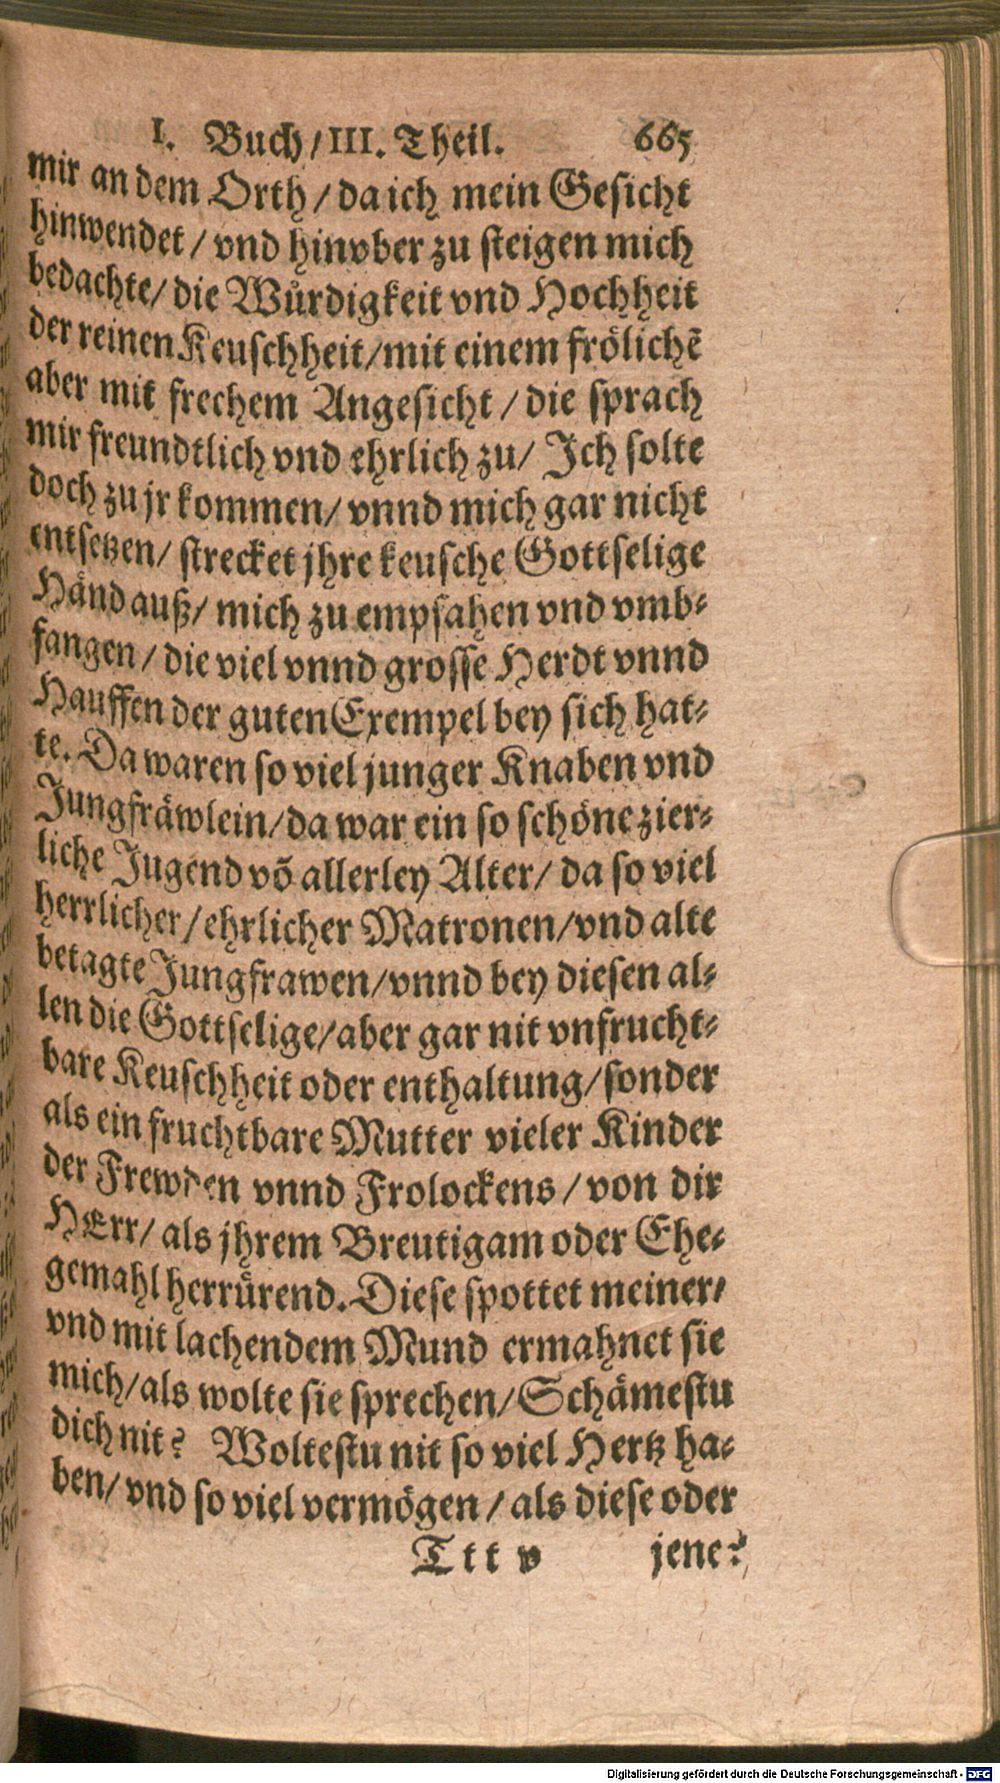 I. Buch / III. Theil. 665
mir an dem Orth / da ich mein Gesicht
hinwendet / vnd hinvber zu steigen mich
bedachte / die Wuͤrdigkeit vnd Hochheit
der reinen Keuschheit / mit einem froͤlichẽ
aber mit frechem Angesicht / die sprach
mir freundtlich vnd ehrlich zu / Ich solte
doch zu jr kommen / vnnd mich gar nicht
entsetzen / strecket jhre keusche Gottselige
Haͤnd auß / mich zu empfahen vnd vmb⸗
fangen / die viel vnnd grosse Herdt vnnd
Hauffen der guten Exempel bey sich hat⸗
te. Da waren so viel junger Knaben vnd
Jungfraͤwlein / da war ein so schoͤne zier⸗
liche Jugend võ allerley Alter / da so viel
herrlicher / ehrlicher Matronen / vnd alte
betagte Jungfrawen / vnnd bey diesen al⸗
len die Gottselige / aber gar nit vnfrucht⸗
bare Keuschheit oder enthaltung / sonder
als ein fruchtbare Mutter vieler Kinder
der Frewden vnnd Frolockens / von dir
HErr / als jhrem Breutigam oder Ehe⸗
gemahl herruͤrend. Diese spottet meiner /
vnd mit lachendem Mund ermahnet sie
mich / als wolte sie sprechen / Schaͤmestu
dich nit? Woltestu nit so viel Hertz ha⸗
ben / vnd so viel vermoͤgen / als diese oder
Ttt v jene?
Digitalisierung gefördert durch die Deutsche Forschungsgemeinschaft - DFG